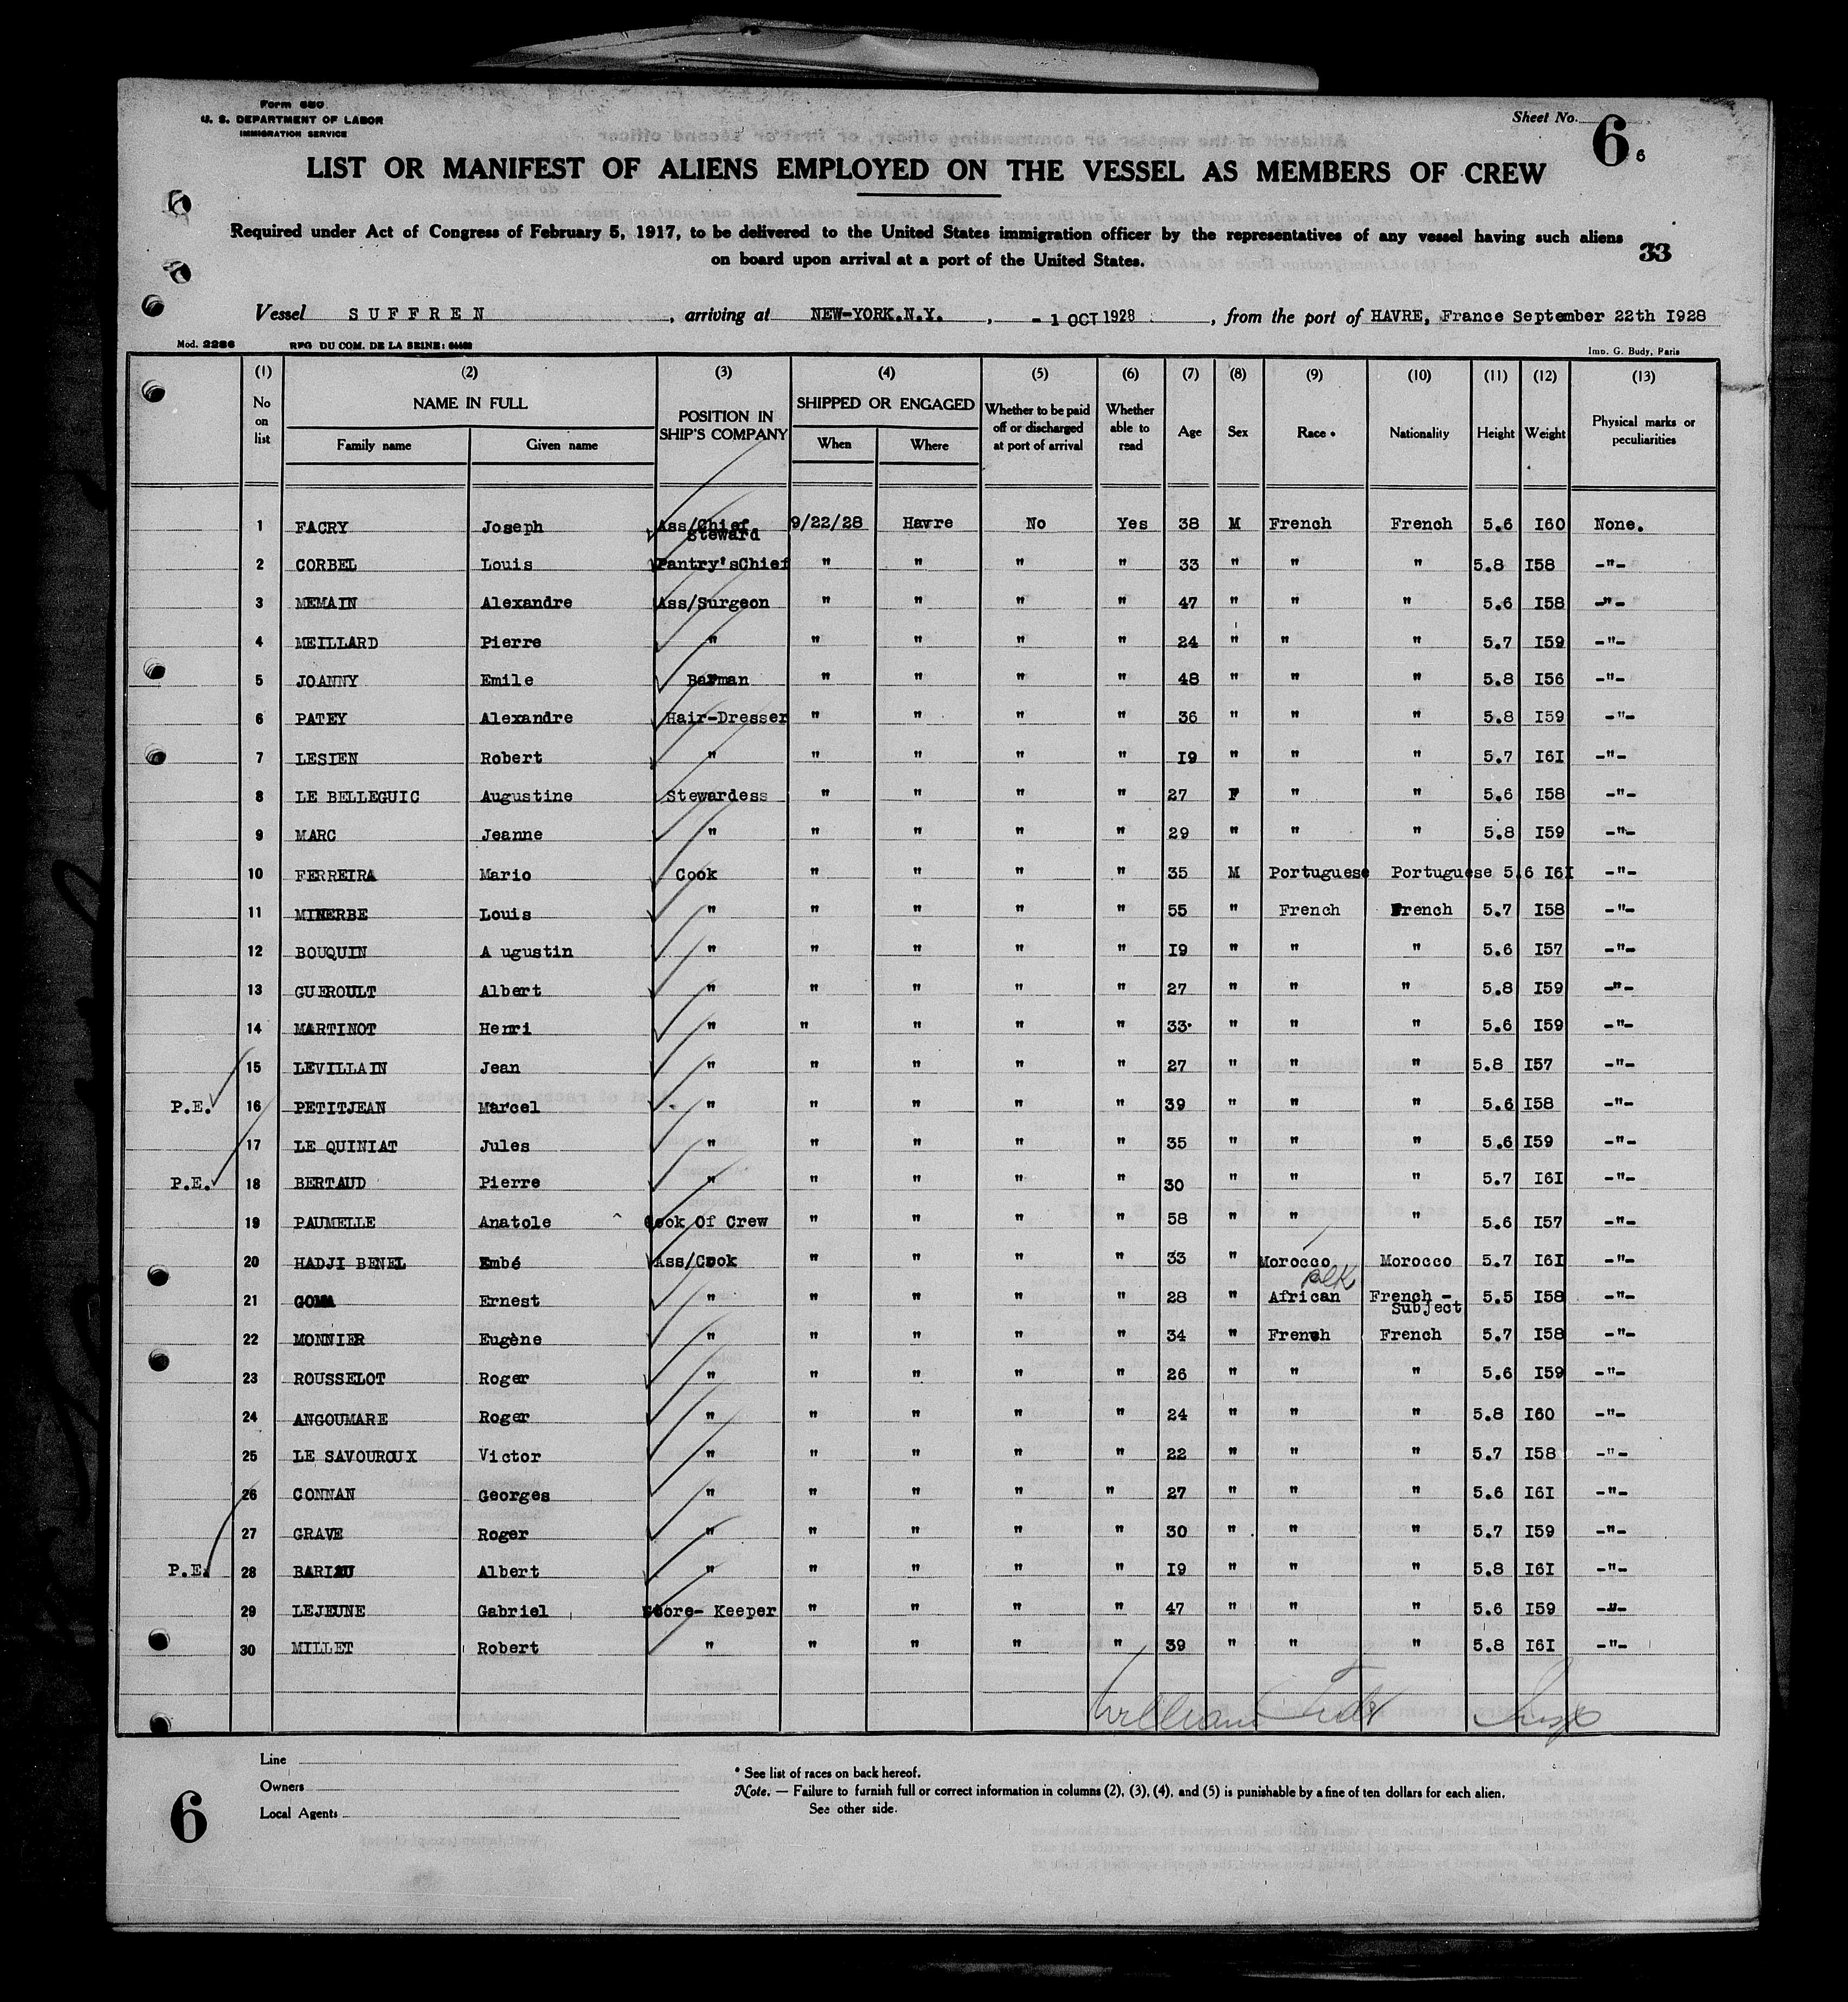 Form 680
U. S. DEPARTMENT OF LABOR
IMMIGRATION SERVICE
Sheet No. 6 6
LIST OR MANIFEST OF ALIENS EMPLOYED ON THE VESSEL AS MEMBERS OF CREW
Required under Act of Congress of February 5, 1917, to be delivered to the United States immigration officer by the representatives of any vessel having such aliens
on board upon arrival at a port of the United States.
33
Vessel SUFFREN, arriving at NEW-YORK.N.Y., - 1 OCT 1928, from the port of HAVRE, France September 22th I928
Mod. 2286 REG DU COM. DE LA SEINE: Imp. G. Budy, Paris
(1) (2) (3) (4) (5) (6) (7) (8) (9) (10) (11) (12) (13)
No on list NAME IN FULL POSITION IN SHIP'S COMPANY SHIPPED OR ENGAGED Whether to be paid off or discharged at port of arrival Whether able to read Age Sex Race * Nationality Height Weight Physical marks or peculiarities
Family name Given name When Where
1 FACRY Joseph Ass/Chief steward 9/22/28 Havre No Yes 38 M French French 5.6 I60 None.
2 CORBEL Louis Pantry'sChief " " " " 33 " " " 5.8 I58 -"-
3 MEMAIN Alexandre Ass/Surgeon " " " " 47 " " " 5.6 I58 -"-
4 MEILLARD Pierre " " " " " 24 " " " 5.7 I59 -"-
5 JOANNY Emile Barman " " " " 48 " " " 5.8 I56 -"-
6 PATEY Alexandre Hair-Dresser " " " " 36 " " " 5.8 I59 -"-
7 LESIEN Robert " " " " " I9 " " " 5.7 I6I -"-
8 LE BELLEGUIC Augustine Stewardess " " " " 27 F " " 5.6 I58 -"-
9 MARC Jeanne " " " " " 29 " " " 5.8 I59 -"-
10 FERREIRA Mario Cook " " " " 35 M Portuguese Portuguese 5.6 I6I -"-
11 MINERBE Louis " " " " " 55 " French French 5.7 I58 -"-
12 BOUQUIN A ugustin " " " " " I9 " " " 5.6 I57 -"-
13 GUEROULT Albert " " " " " 27 " " " 5.8 I59 -"-
14 MARTINOT Henri " " " " " 33 " " " 5.6 I59 -"-
15 LEVILLAIN Jean " " " " " 27 " " " 5.8 I57 -"-
P.E. 16 PETITJEAN Marcel " " " " " 39 " " " 5.6 I58 -"-
17 LE QUINIAT Jules " " " " " 35 " " " 5.6 I59 -"-
P.E. 18 BERTAUD Pierre " " " " " 30 " " " 5.7 I6I -"-
19 PAUMELLE Anatole Cook Of Crew " " " " 58 " " " 5.6 I57 -"-
20 HADJI BENEL Embé Ass/Cook " " " " 33 " Morocco Morocco 5.7 I6I -"-
21 GOMA Ernest " " " " " 28 " African blk French - Subject 5.5 I58 -"-
22 MONNIER Eugène " " " " " 34 " French French 5.7 I58 -"-
23 ROUSSELOT Roger " " " " " 26 " " " 5.6 I59 -"-
24 ANGOUMARE Roger " " " " " 24 " " " 5.8 I60 -"-
25 LE SAVOUROUX Victor " " " " " 22 " " " 5.7 I58 -"-
26 CONNAN Georges " " " " " 27 " " " 5.6 I6I -"-
27 GRAVE Roger " " " " " 30 " " " 5.7 I59 -"-
P.E. 28 Albert " " " " " I9 " " " 5.8 I6I -"-
29 LEJEUNE Gabriel Store- Keeper " " " " 47 " " " 5.6 I59 -"-
30 MILLET Robert " " " " " 39 " " " 5.8 I6I -"-
William
Line
Owners
Local Agents
* See list of races on back hereof.
Note. — Failure to furnish full or correct information in columns (2), (3), (4), and (5) is punishable by a fine of ten dollars for each alien.
See other side.
6